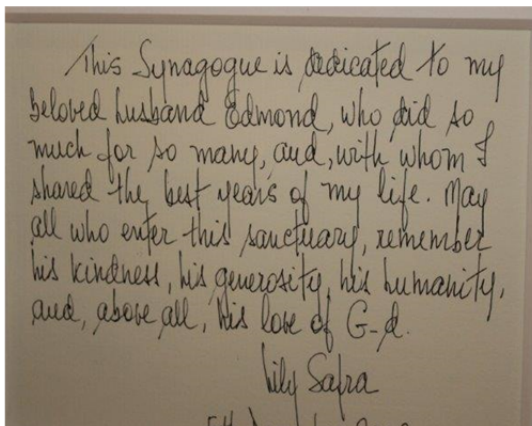 This Synagogue is dedicated to my
beloved husband Edmond, who did so
much for so many, and, with whom I
shared the best years of my life. May
all who enter this sanctuary, remember
his kindness, his generosity, his humanity,
and, above all, his love of G-d.
Lily Safra